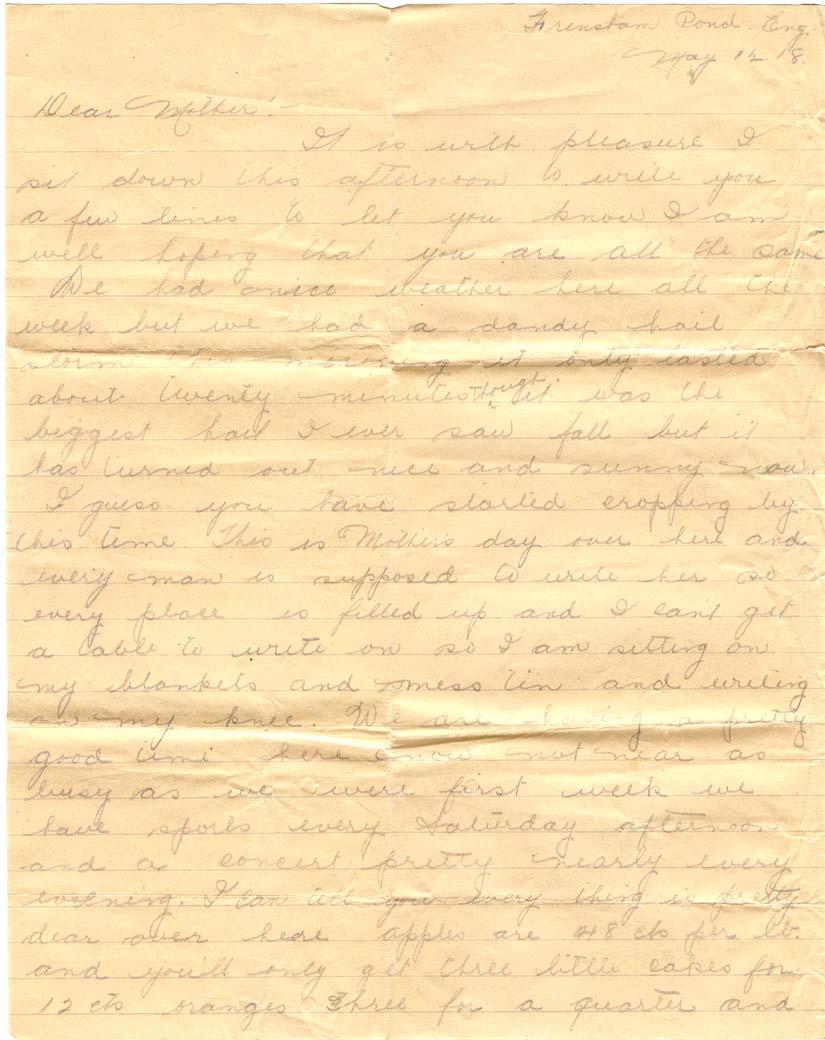 Frensham Pond. Eng.
May 12 18.
Dear Mother:-
It is with pleasure I
sit down this afternoon to write you
a few lines to let you know I am
well hoping that you are all the same
We had a nice weather here all the
week but we had a dandy hail
storm this morning it only lasted
about twenty minutes though. it was the
biggest hail I ever saw fall but it
has turned out nice and sunny now.
I guess you have started cropping by
this time This is Mothers day over here and
every man is supposed to write her so
every place is filled up and I cant get
a table to write on so I am sitting on
my blankets and mess tin and writing
on my knee. We are having a pretty
good time here now not near as
busy as we were first week we
have sports every Saturday afternoon
and a concert pretty nearly every
evening. I can tell you every thing is pretty
dear over here apples are 48 cts per lb.
and you'll only get three little cakes for
12 cts oranges three for a quarter and